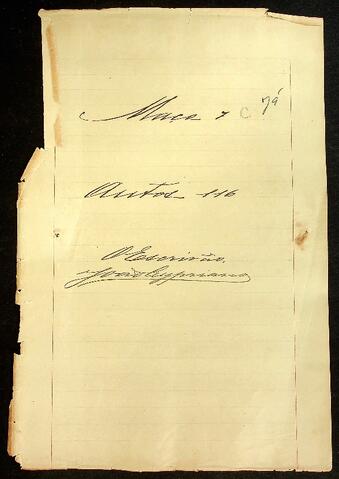 Maça 7 C 7á
Autos 116
O Escrivão
João Cypriano